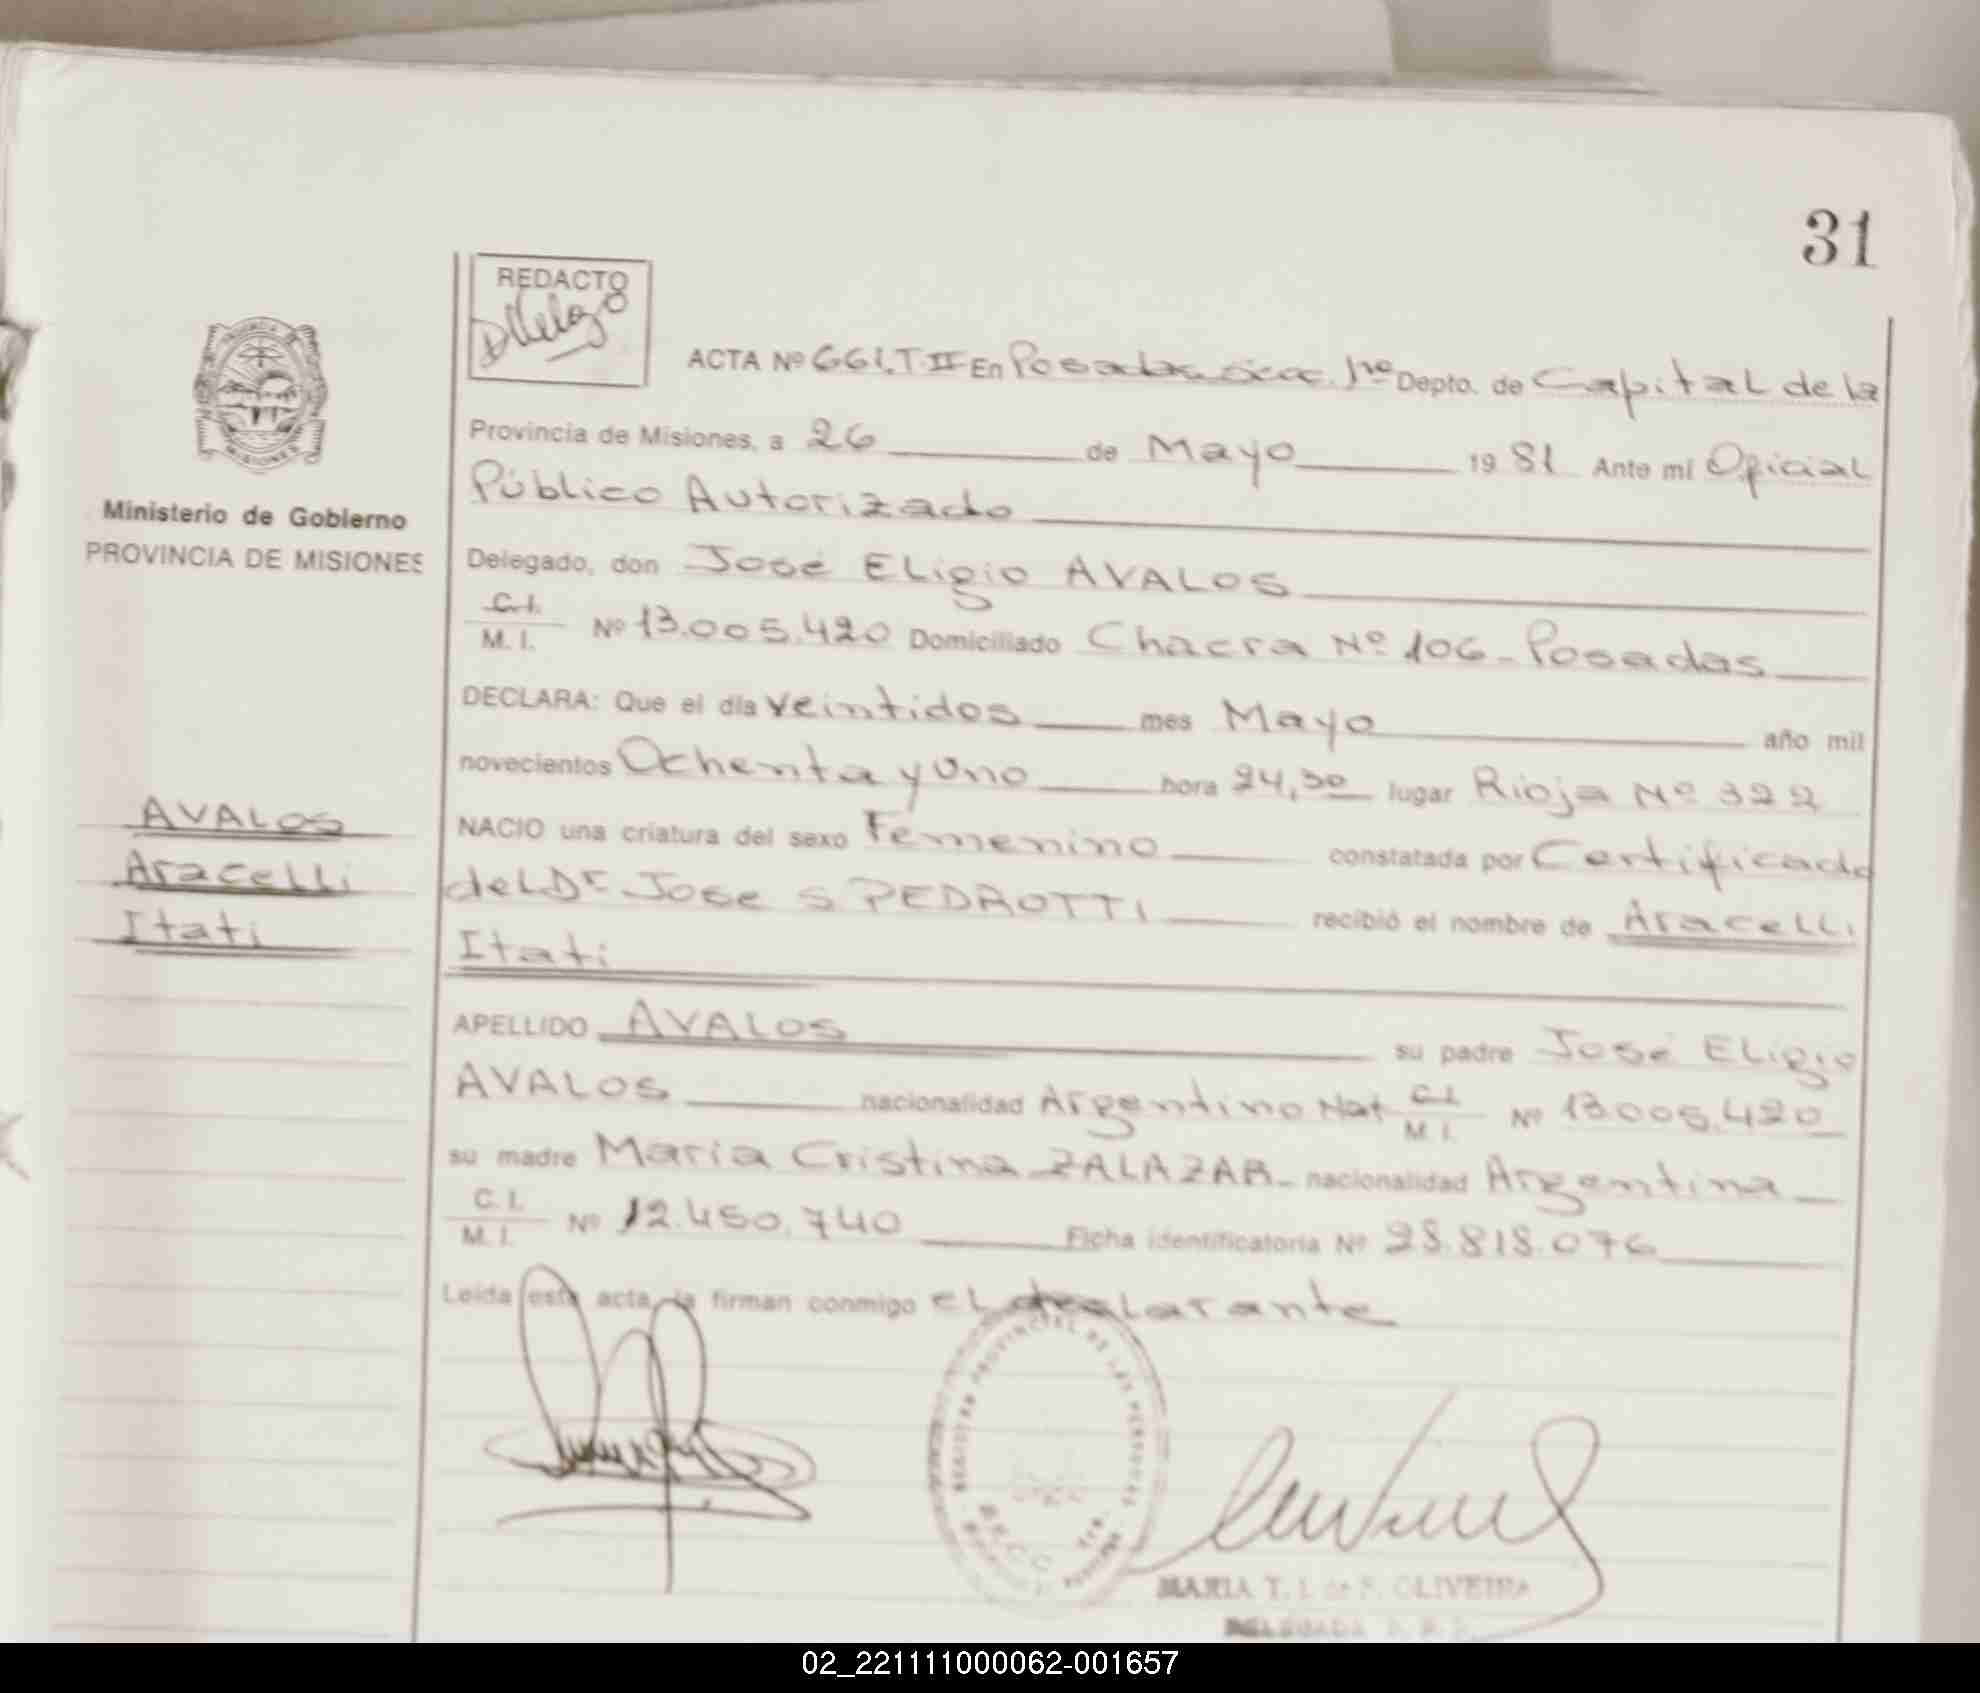 31
REDACTO
ACTA Nº 661, T. II En Posadas Secc. 1ra Depto. de Capital de la
Provincia de Misiones, a 26 de Mayo 1981 Ante mi Oficial
Público Autorizado
Ministerio de Gobierno
PROVINCIA DE MISIONES
Delegado, don José Eligio AVALOS
C.I.
M.I. Nº 13.005.420 Domiciliado Chacra Nº 106 - Posadas
DECLARA: Que el día veintidos mes Mayo año mil
novecientos Ochenta y Uno hora 24,30 lugar Rioja Nº 322
AVALOS
Aracelli
Itati
NACIO una criatura del sexo Femenino constatada por Certificado
del Dr Jose S. PEDROTTI recibió el nombre de Aracelli
Itati
APELLIDO AVALOS su padre José Eligio
AVALOS nacionalidad Argentino Nat C.I.
M.I. Nº 13.005.420
su madre Maria Cristina ZALAZAR - nacionalidad Argentina
C.I.
M.I. Nº 12.450.740 Ficha identificatoria Nº 28.818.076
Leída esta acta, la firman conmigo el declarante
REGISTRO PROVINCIAL DE LAS PERSONAS
MARIA T. I. de F. OLIVEIRA
DELEGADA
02_221111000062-001657